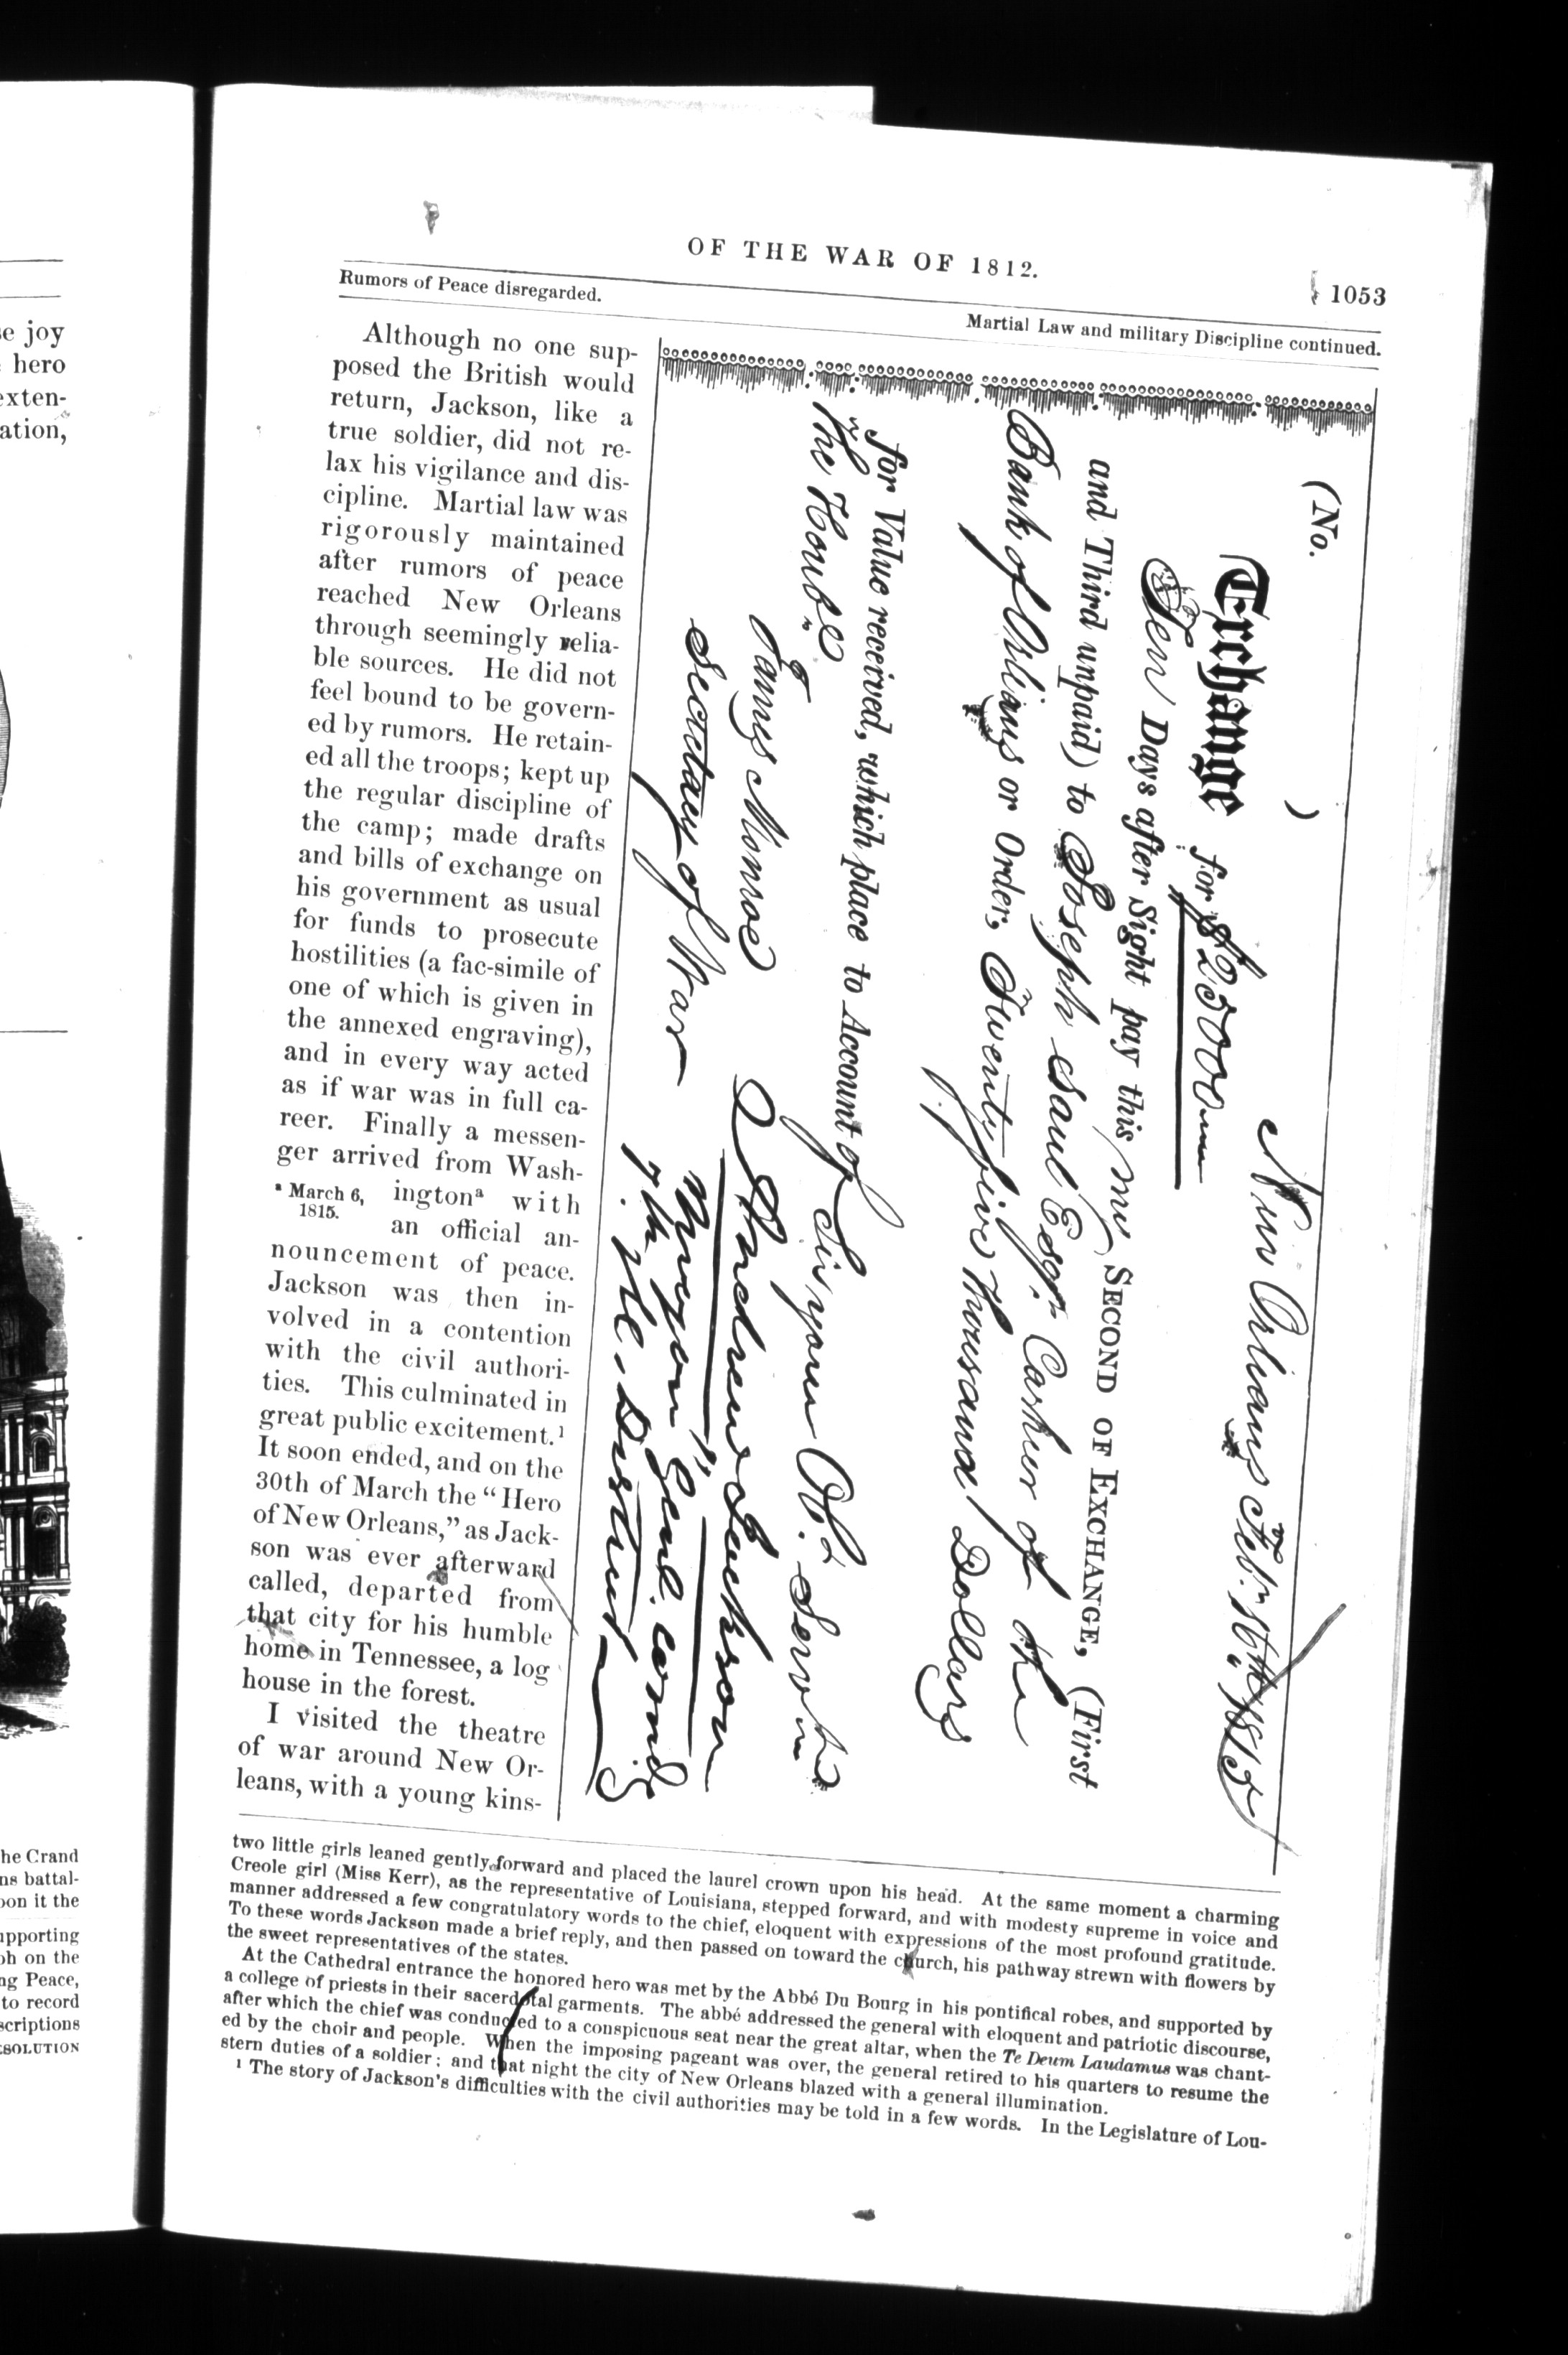 se joy
hero
exten-
ation,
he Crand
ns battal-
oon it the
upporting
ph on the
ng Peace,
to record
scriptions
ESOLUTION
OF THE WAR OF 1812.
1053
Rumors of Peace disregarded.
Martial Law and military Discipline continued.
Although no one sup-
posed the British would
return, Jackson, like a
true soldier, did not re-
lax his vigilance and dis-
cipline. Martial law was
rigorously maintained
after rumors of peace
reached New Orleans
through seemingly relia-
ble sources. He did not
feel bound to be govern-
ed by rumors. He retain-
ed all the troops; kept up
the regular discipline of
the camp; made drafts
and bills of exchange on
his government as usual
for funds to prosecute
hostilities (a fac-simile of
one of which is given in
the annexed engraving),
and in every way acted
as if war was in full ca-
reer. Finally a messen-
ger arrived from Wash-
ª March 6, ingtonª with
1815. an official an-
nouncement of peace.
Jackson was then in-
volved in a contention
with the civil authori-
ties. This culminated in
great public excitement.¹
It soon ended, and on the
30th of March the "Hero
of New Orleans," as Jack-
son was ever afterward
called, departed from
that city for his humble
home in Tennessee, a log
house in the forest.
I visited the theatre
of war around New Or-
leans, with a young kins-
(No. )
New Orleans Feby. 16th, 1815
Exchange for $25000
Ten Days after Sight pay this my SECOND OF EXCHANGE, (First
and Third unpaid) to Joseph Saul Esqr. Cashier of the
Bank of Orleans or Order, Twenty five Thousand Dollars
for Value received, which place to Account of Sir your Obt. Servt
The Honble
James Monroe
Secretary of War
Andrew Jackson
Major Genl. comdg
7th. Me. District
two little girls leaned gently forward and placed the laurel crown upon his head. At the same moment a charming
Creole girl (Miss Kerr), as the representative of Louisiana, stepped forward, and with modesty supreme in voice and
manner addressed a few congratulatory words to the chief, eloquent with expressions of the most profound gratitude.
To these words Jackson made a brief reply, and then passed on toward the church, his pathway strewn with flowers by
the sweet representatives of the states.
At the Cathedral entrance the honored hero was met by the Abbé Du Bourg in his pontifical robes, and supported by
a college of priests in their sacerdotal garments. The abbé addressed the general with eloquent and patriotic discourse,
after which the chief was conducted to a conspicuous seat near the great altar, when the Te Deum Laudamus was chant-
ed by the choir and people. When the imposing pageant was over, the general retired to his quarters to resume the
stern duties of a soldier; and that night the city of New Orleans blazed with a general illumination.
¹ The story of Jackson's difficulties with the civil authorities may be told in a few words. In the Legislature of Lou-